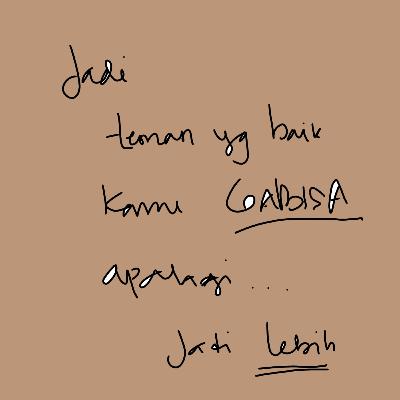 Jadi
teman yg baik
Kamu GABISA
apalagi...
Jadi lebih